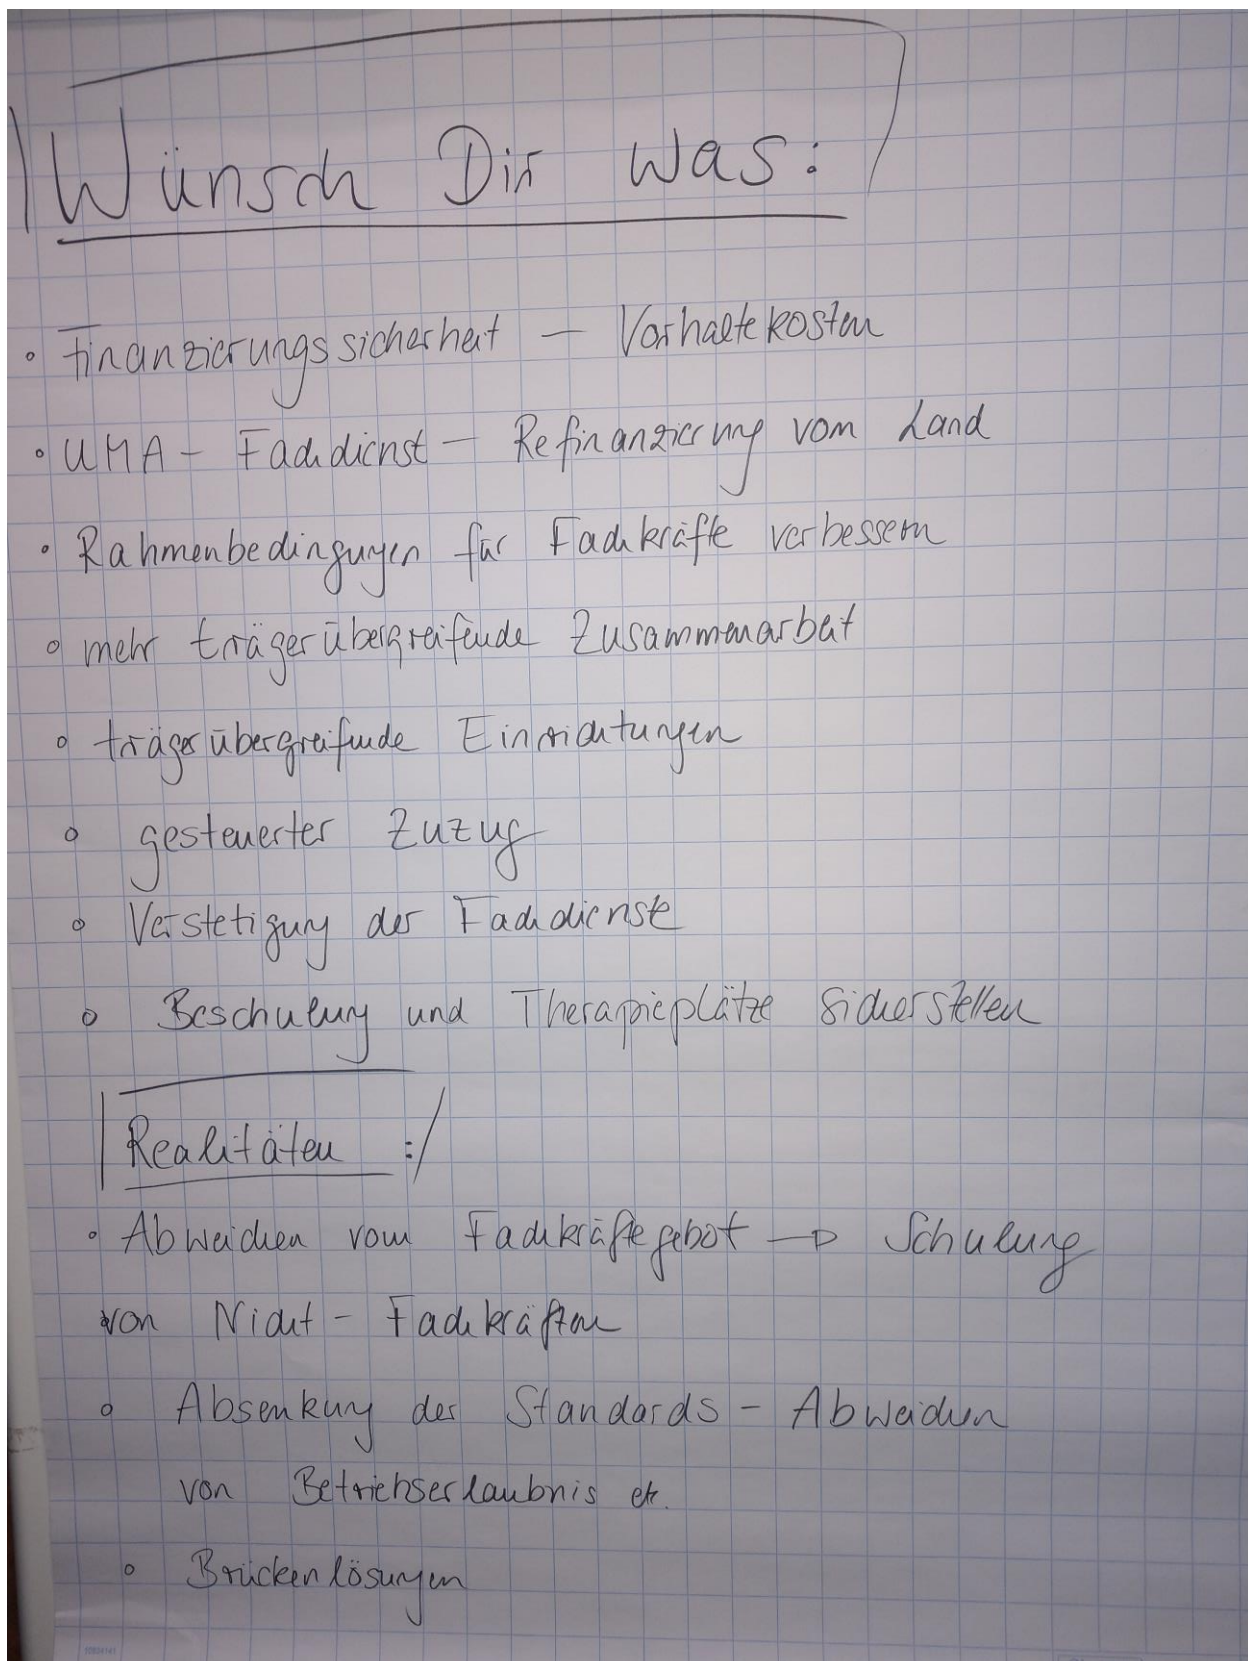 Wünsch Dir was:
• Finanzierungssicherheit – Vorhaltekosten
• UMA – Fachdienst – Refinanzierung vom Land
• Rahmenbedingungen für Fachkräfte verbessern
• mehr trägerübergreifende Zusammenarbeit
• trägerübergreifende Einrichtungen
• gesteuerter Zuzug
• Verstetigung der Fachdienste
• Beschulung und Therapieplätze sicherstellen
Realitäten :
• Abweichen vom Fachkräftegebot → Schulung
von Nicht – Fachkräften
• Absenkung der Standards – Abweichen
von Betriebserlaubnis etc.
• Brückenlösungen